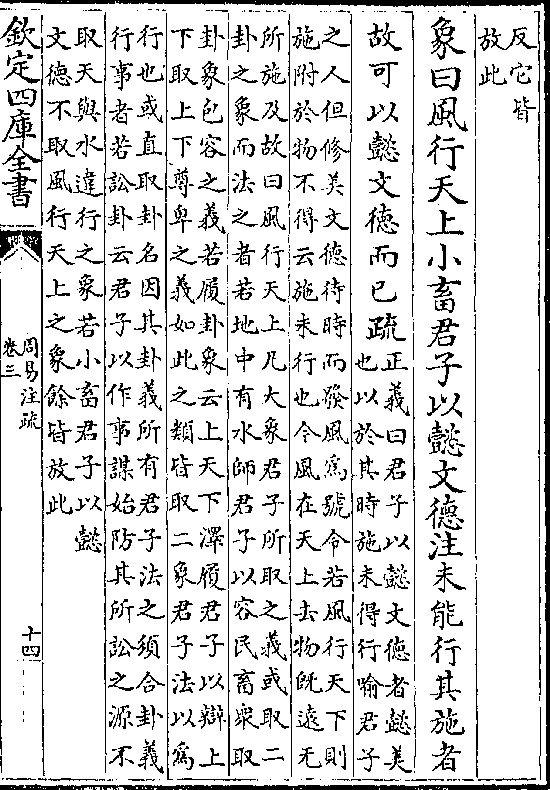 反它皆
放此
象曰風行天上小畜君子以懿文德注未能行其施者
故可以懿文德而已疏
正義曰君子以懿文德者懿美
也以於其時施未得行喻君子
之人但修美文德待時而發風為號令若風行天下則
施附於物不得云施未行也今風在天上去物既遠无
所施及故曰風行天上凡大象君子所取之義或取二
卦之象而法之者若地中有水師君子以容民畜衆取
卦象包容之義若履卦象云上天下澤履君子以辯上
下取上下尊卑之義如此之類皆取二象君子法以為
行也或直取卦名因其卦義所有君子法之須合卦義
行事者若訟卦云君子以作事謀始防其所訟之源不
取天與水違行之象若小畜君子以懿
文德不取風行天上之象餘皆放此
欽定四庫全書
周易注疏
卷三
十四